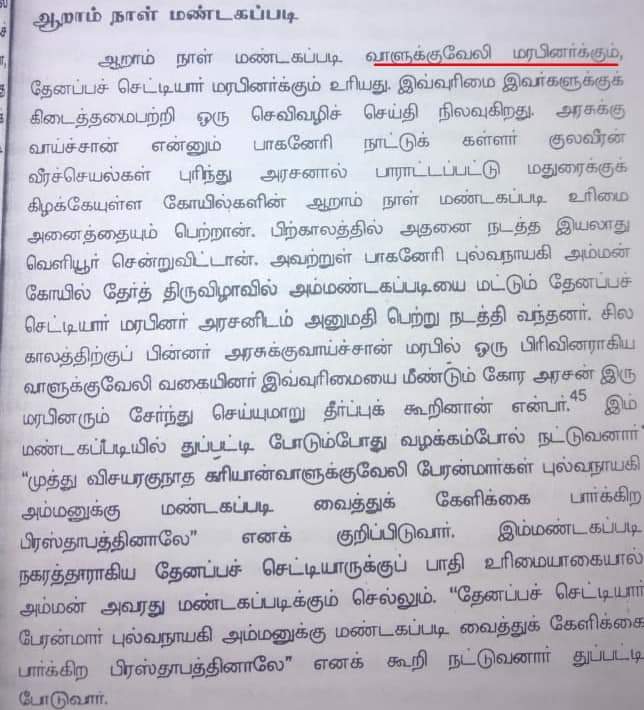 ஆறாம் நாள் மண்டகப்படி
ஆறாம் நாள் மண்டகப்படி வாளுக்குவேலி மரபினர்க்கும்,
தேனப்பச் செட்டியார் மரபினர்க்கும் உரியது. இவ்வுரிமை இவர்களுக்குக்
கிடைத்தமைபற்றி ஒரு செவிவழிச் செய்தி நிலவுகிறது. அரசுக்கு
வாய்ச்சான் என்னும் பாகனேரி நாட்டுக் கள்ளர் குலவீரன்
வீரச்செயல்கள் புரிந்து அரசனால் பாராட்டப்பட்டு மதுரைக்குக்
கிழக்கேயுள்ள கோயில்களின் ஆறாம் நாள் மண்டகப்படி உரிமை
அனைத்தையும் பெற்றான். பிற்காலத்தில் அதனை நடத்த இயலாது
வெளியூர் சென்றுவிட்டான். அவற்றுள் பாகனேரி புல்வநாயகி அம்மன்
கோயில் தேர்த் திருவிழாவில் அம்மண்டகப்படியை மட்டும் தேனப்பச்
செட்டியார் மரபினர் அரசனிடம் அனுமதி பெற்று நடத்தி வந்தனர். சில
காலத்திற்குப் பின்னர் அரசுக்குவாய்ச்சான் மரபில் ஒரு பிரிவினராகிய
வாளுக்குவேலி வகையினர் இவ்வுரிமையை மீண்டும் கோர அரசன் இரு
மரபினரும் சேர்ந்து செய்யுமாறு தீர்ப்புக் கூறினான் என்பர்.45 இம்
மண்டகப்படியில் துப்பட்டி போடும்போது வழக்கம்போல் நட்டுவனார்
“முத்து விசயரகுநாத கரியான்வாளுக்குவேலி பேரன்மார்கள் புல்வநாயகி
அம்மனுக்கு மண்டகப்படி வைத்துக் கேளிக்கை பார்க்கிற
பிரஸ்தாபத்தினாலே” எனக் குறிப்பிடுவார். இம்மண்டகப்படி
நகரத்தாராகிய தேனப்பச் செட்டியாருக்குப் பாதி உரிமையாகையால்
அம்மன் அவரது மண்டகப்படிக்கும் செல்லும். “தேனப்பச் செட்டியார்
பேரன்மார் புல்வநாயகி அம்மனுக்கு மண்டகப்படி வைத்துக் கேளிக்கை
பார்க்கிற பிரஸ்தாபத்தினாலே” எனக் கூறி நட்டுவனார் துப்பட்டி
போடுவார்.